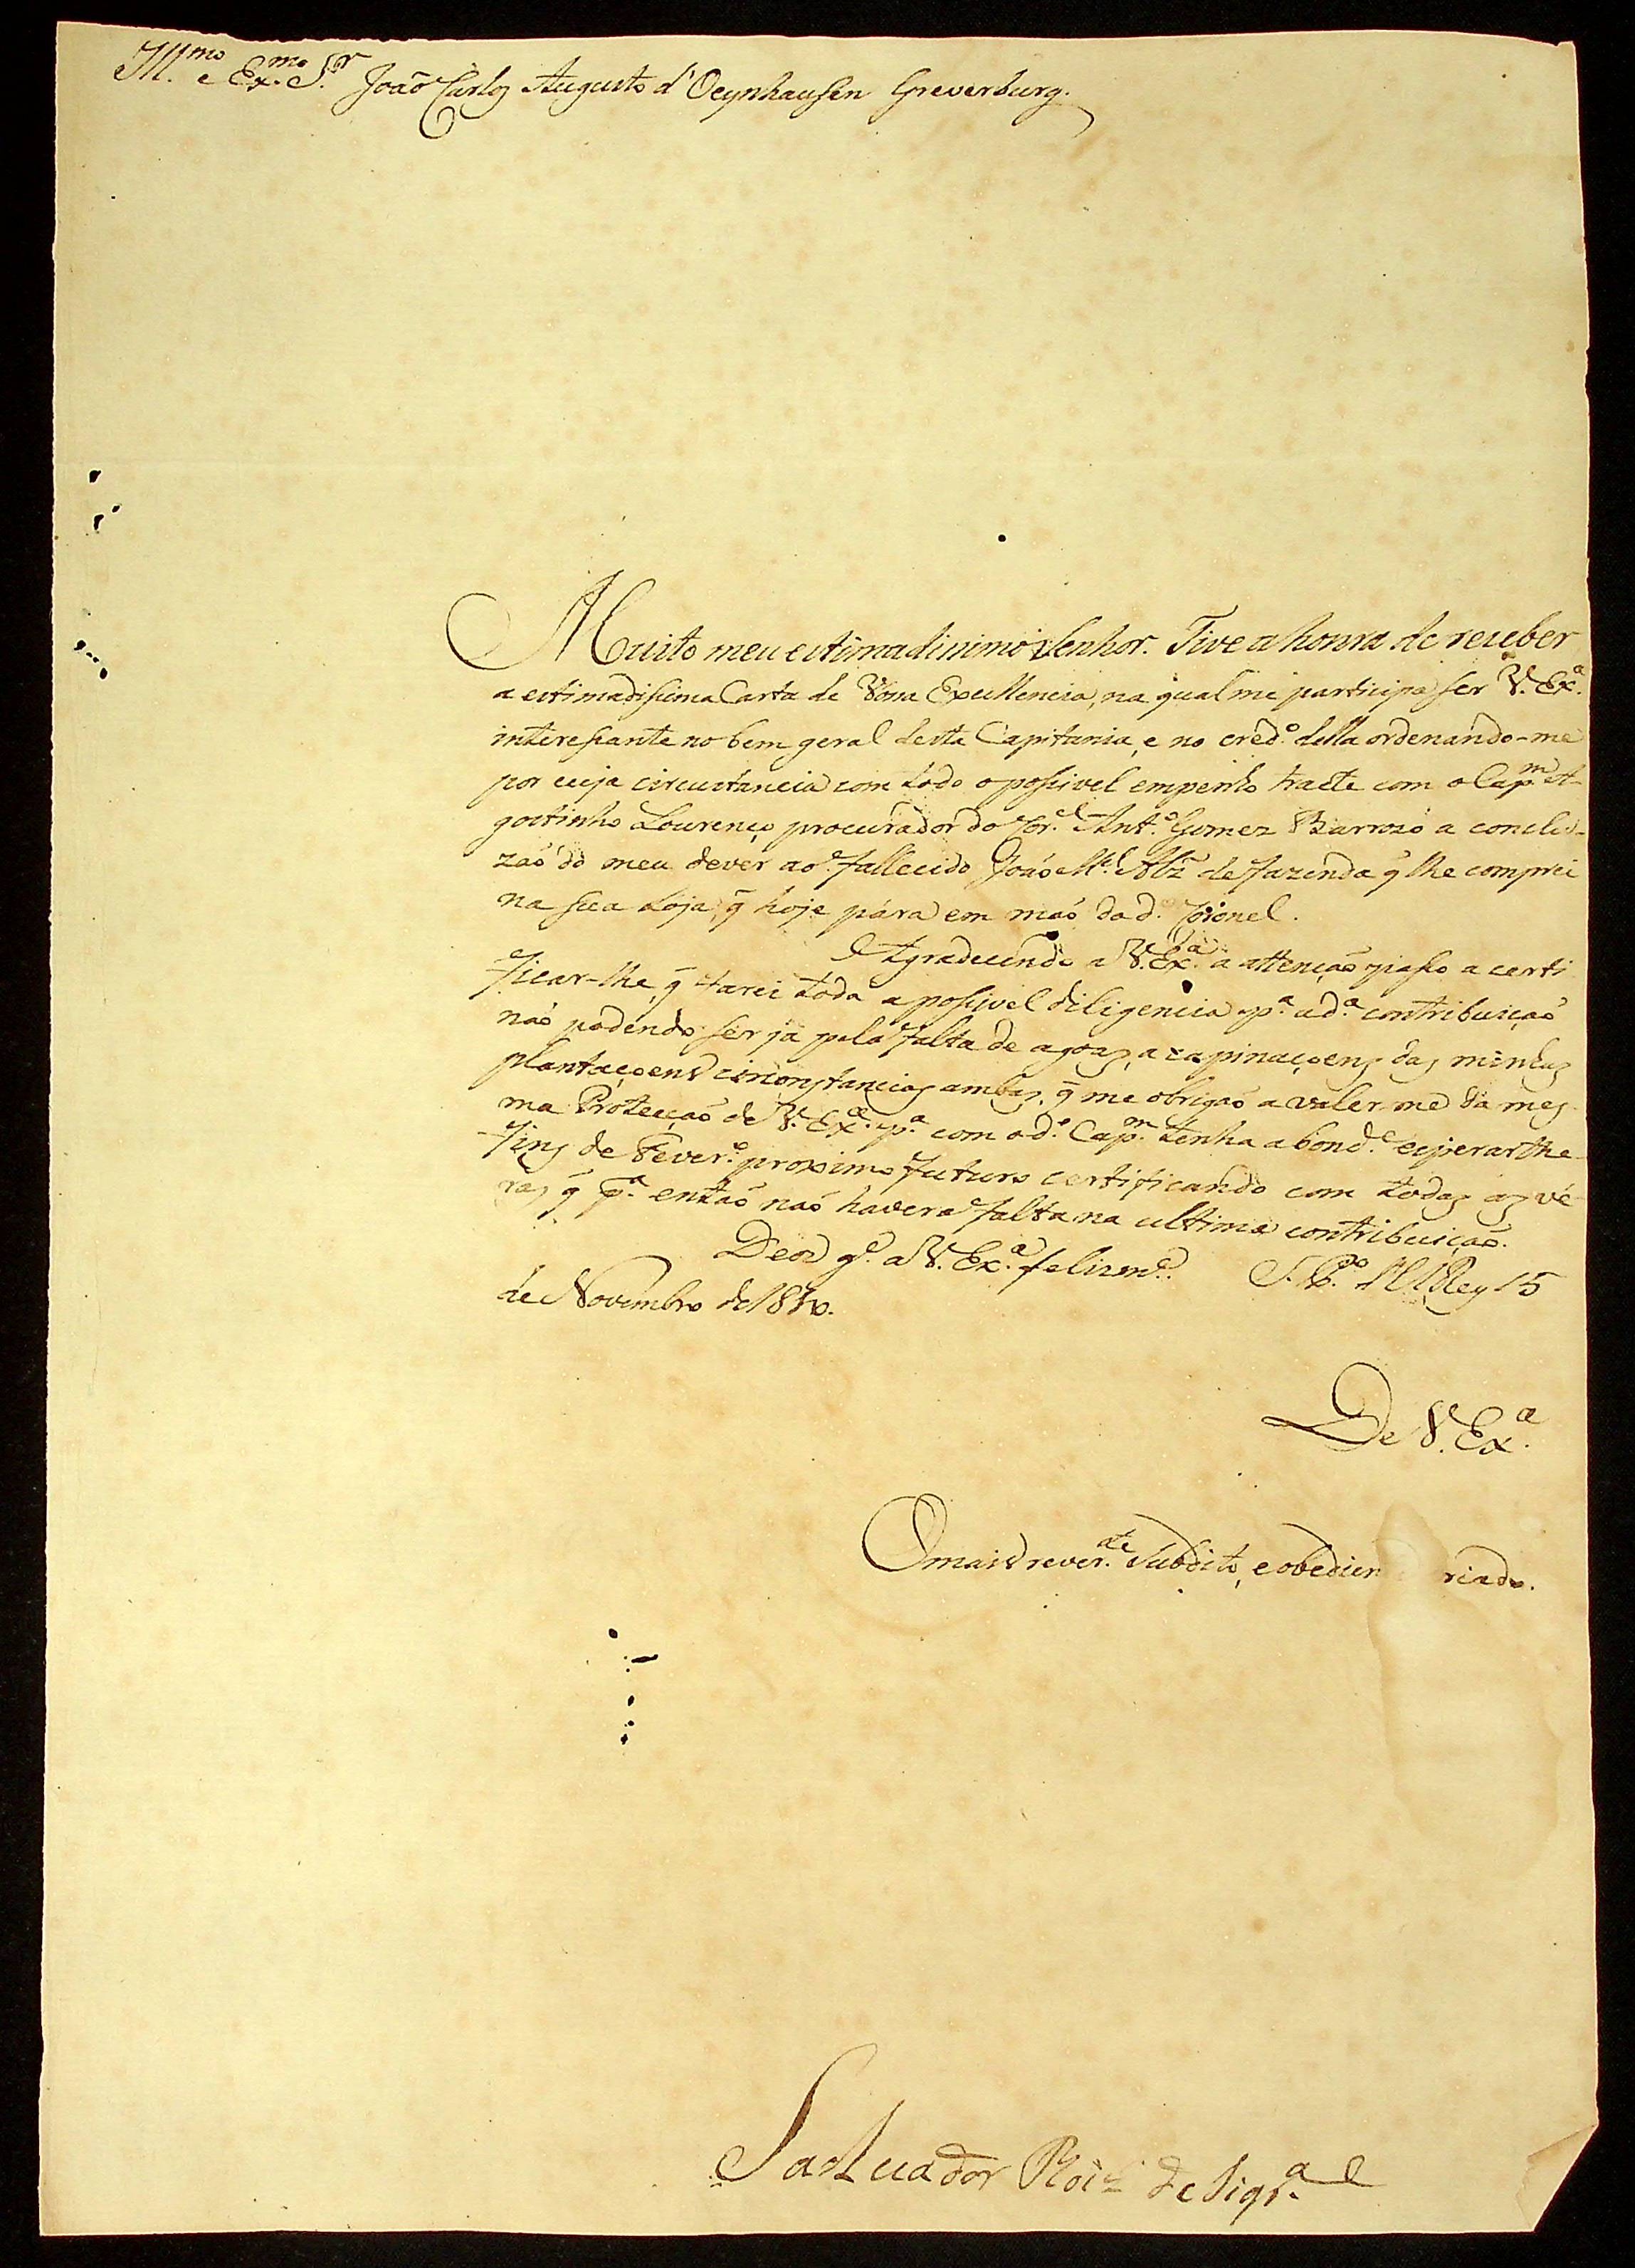 Ill.mo e Ex.mo S.r João Carlos Augusto d'Oeynhausen Greverburg.
Muito meu estimadissimo Senhor. Tive a honra de receber
a estimadissima Carta de Vossa Excellencia, na qual me participa ser V. Ex.a
interessante no bem geral desta Capitania, e no cred.o della ordenando-me
por cuja circustancia com todo o possivel empenho tracte com o Cap.m A-
gostinho Lourenço procurador do Cor.el Ant.o Gomez Barrozo a conclu-
zaõ do meu dever ao fallecido Joaõ M.el Alz̃ de fazenda q̃ lhe comprei
na sua Loja, q̃ hoje pára em maõ do d.o Coronel.
Agradecendo a V. Ex.a a attençaõ passo a certi
ficar-lhe, q̃ farei toda a possivel diligencia p.a a d.a contribuiçaõ
naõ podendo ser já pela falta de agoas, a capinaçoens das minhas
plantaçoens circonstancias ambas, q̃ me obrigaõ a valer-me da mes-
ma Protecçaõ de V. Ex.a p.a com o d.o Cap.m tenha a bond.e esperar the
fins de Fever.o proximo futuro certificando com todas as vé-
ras q̃ p.a entaõ naõ haverá falta na ultima contribuiçaõ.
Deos g.e a V. Ex.a felizm.e S. P.o d'ElRey 15
de Novembro de 1810.
De V. Ex.a
O mais rever.te Subdito, e obedien riado.
Salvador Roiz de Siqr.a